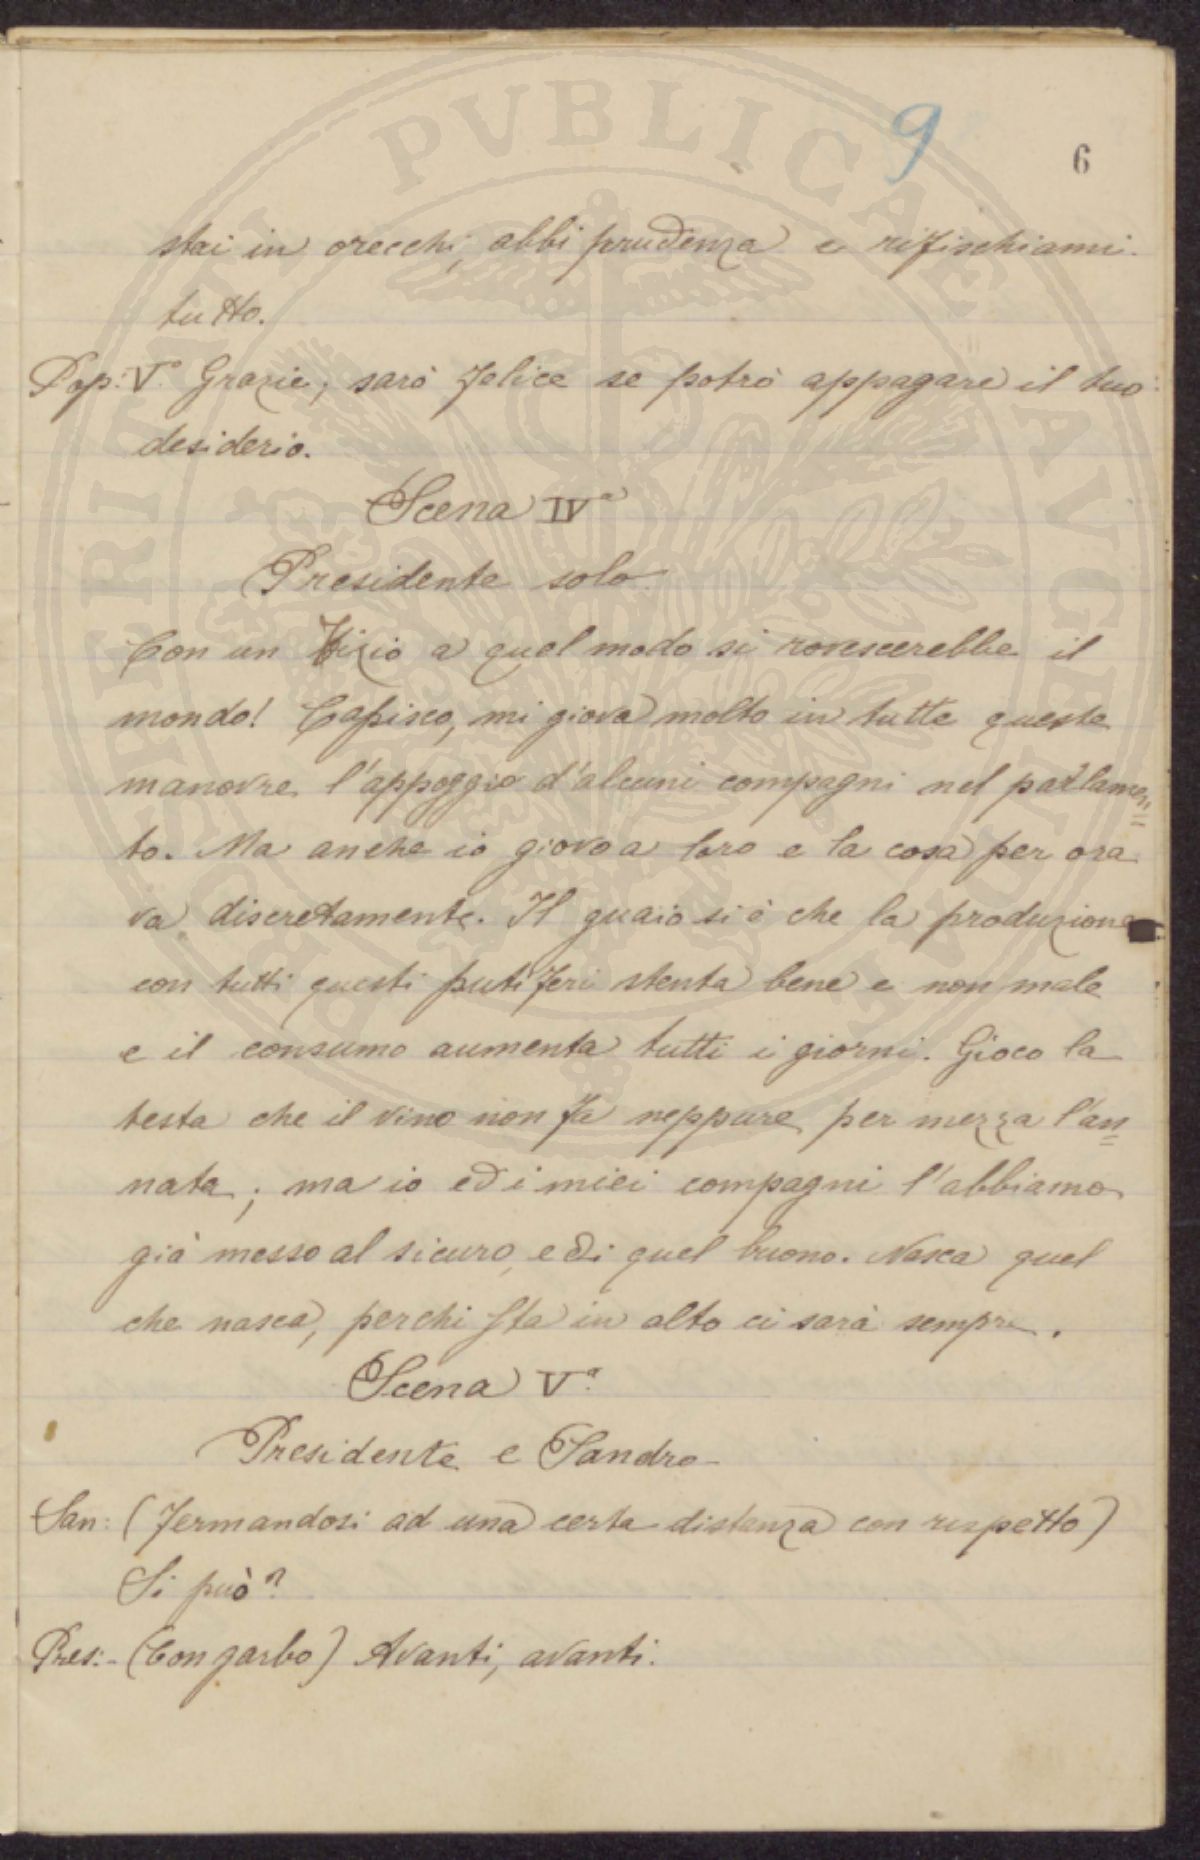 9
6
stai in orecchi, abbi prudenza e rifischiami
tutto.
Pop: V.° Grazie, sarò felice se potrò appagare il tuo
desiderio.
Scena IVª
Presidente solo
Con un Tizio a quel modo si rovescerebbe il
mondo! Capisco, mi giova molto in tutte queste
manovre l'appoggio d'alcuni compagni nel parlamen=
to. Ma anche io giovo a loro e la cosa per ora
va discretamente. Il guaio si è che la produzione
con tutti questi putiferi stenta bene e non male
e il consumo aumenta tutti i giorni. Gioco la
testa che il vino non fa neppure per mezza l'an=
nata; ma io ed i miei compagni l'abbiamo
già messo al sicuro, e di quel buono. Nasca quel
che nasca, per chi sta in alto ci sarà sempre.
Scena V.ª
Presidente e Sandro
San: (fermandosi ad una certa distanza con rispetto)
Si può?
Pres:- (Con garbo) Avanti, avanti.
PROSPERITATI PVBLICAE AVGENDAE